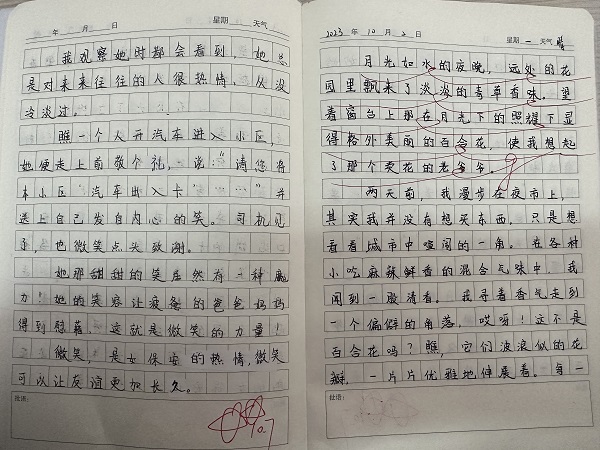 年 月 日 星期 天气
我观察她时都会看到,她总
是对来来往往的人很热情,从没
冷淡过。
瞧一个人开汽车进入小区,
她便走上前敬个礼,说:“请您将
本小区‘汽车出入卡’“……”并
送上自己发自内心的笑。司机见
了,也微笑点头致谢。
她那甜甜的笑居然有一种魔
力!她的笑容让疲惫的爸爸妈妈
得到慰藉。这就是微笑的力量!
微笑,是女保安的热情,微笑
可以让友谊更加长久。
批语:
10.7
2023 年 10 月 2 日 星期 一 天气 晴
月光如水的夜晚,远处的花
园里飘来了淡淡的青草香味。望
着窗台上那在月光下的照耀下显
得格外美丽的百合花,使我想起
了那个卖花的老爷爷。
两天前,我漫步在夜市上,
其实我并没有想买东西,只是想
看看城市中喧闹的一角。在各种
小吃麻辣鲜香的混合气味中,我
闻到一股清香。我寻着香气走到
一个偏僻的角落,哎呀!这不是
百合花吗?瞧,它们波浪似的花
瓣,一片片优雅地伸展着。每一
批语: